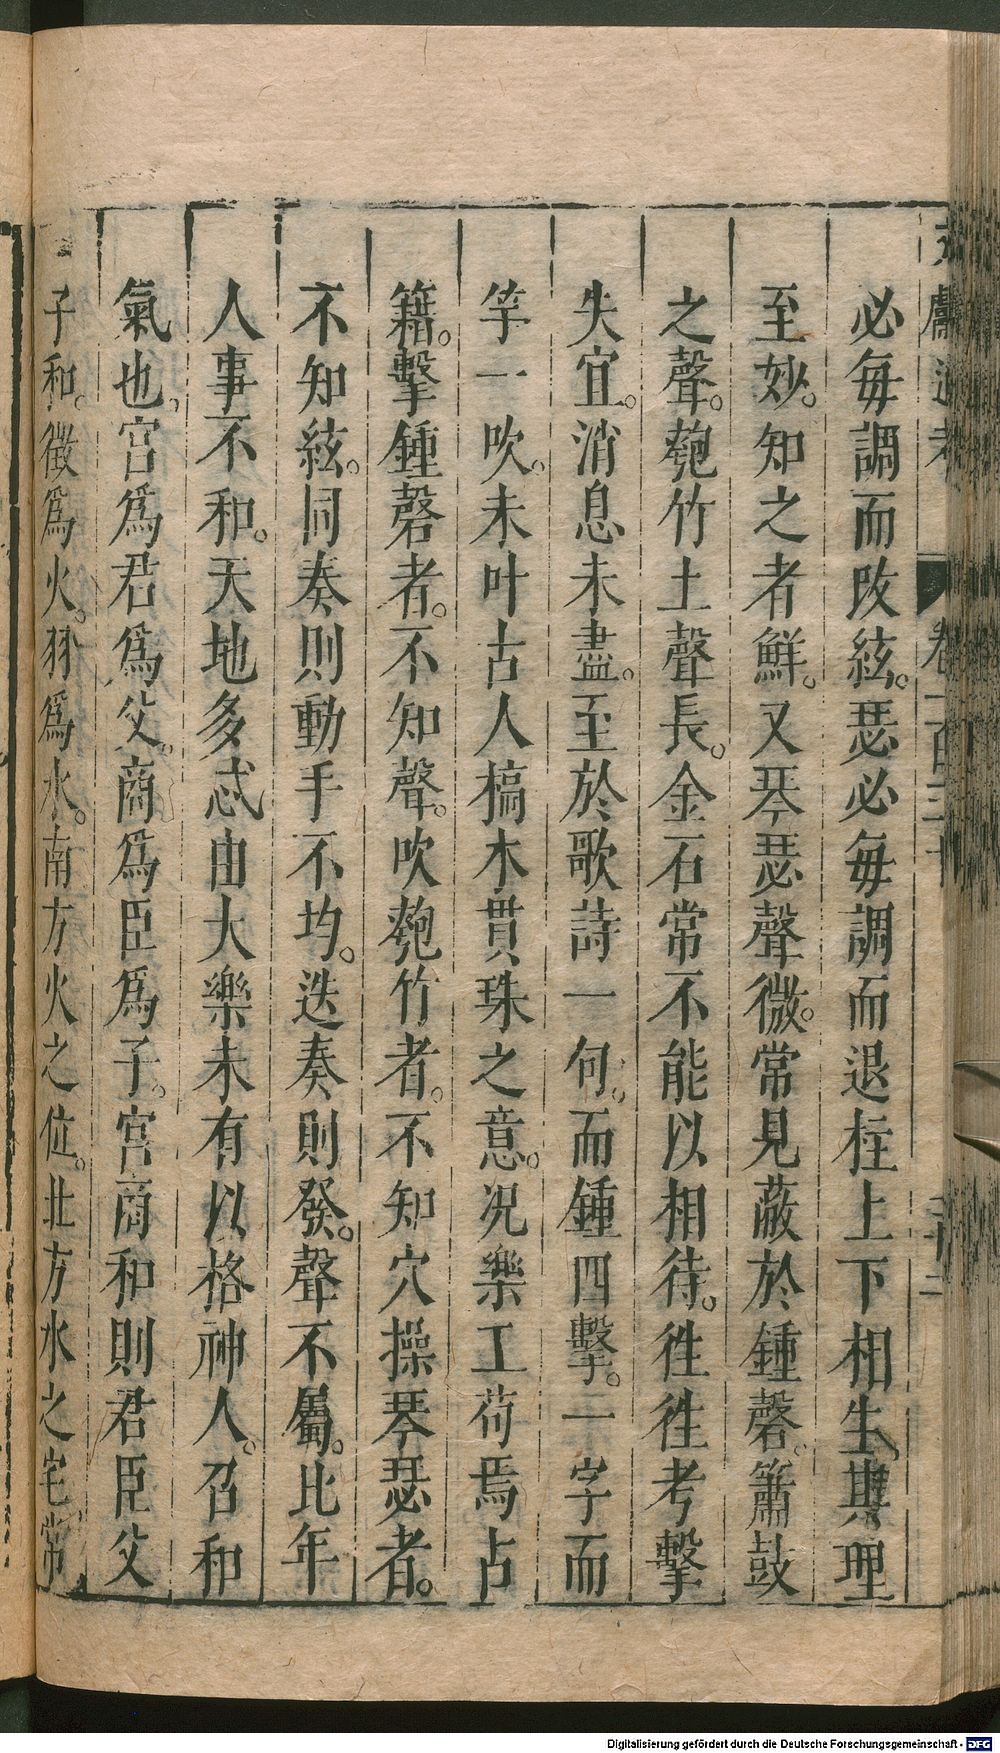 文獻通考 卷一百三十 三十二
必每調而改絃。瑟必每調而退柱上下相生。其理
至妙。知之者鮮。又琴瑟聲微。常見蔽於鍾磬。簫鼓
之聲。匏竹土聲長。金石常不能以相待。徃徃考擊
失宜。消息未盡。至於歌詩一句。而鍾四擊。一字而
竽一吹。未叶古人槁木貫珠之意。况樂工苟焉占
籍。擊鍾磬者。不知聲。吹匏竹者。不知穴操琴瑟者。
不知絃。同奏則動手不均。迭奏則發。聲不屬。比年
人事不和。天地多忒由大樂未有以格神人。召和
氣也。宫爲君爲父。商爲臣爲子。宫商和則君臣父
子和。徵爲火。羽爲水。南方火之位。北方水之宅常
Digitalisierung gefördert durch die Deutsche Forschungsgemeinschaft - DFG